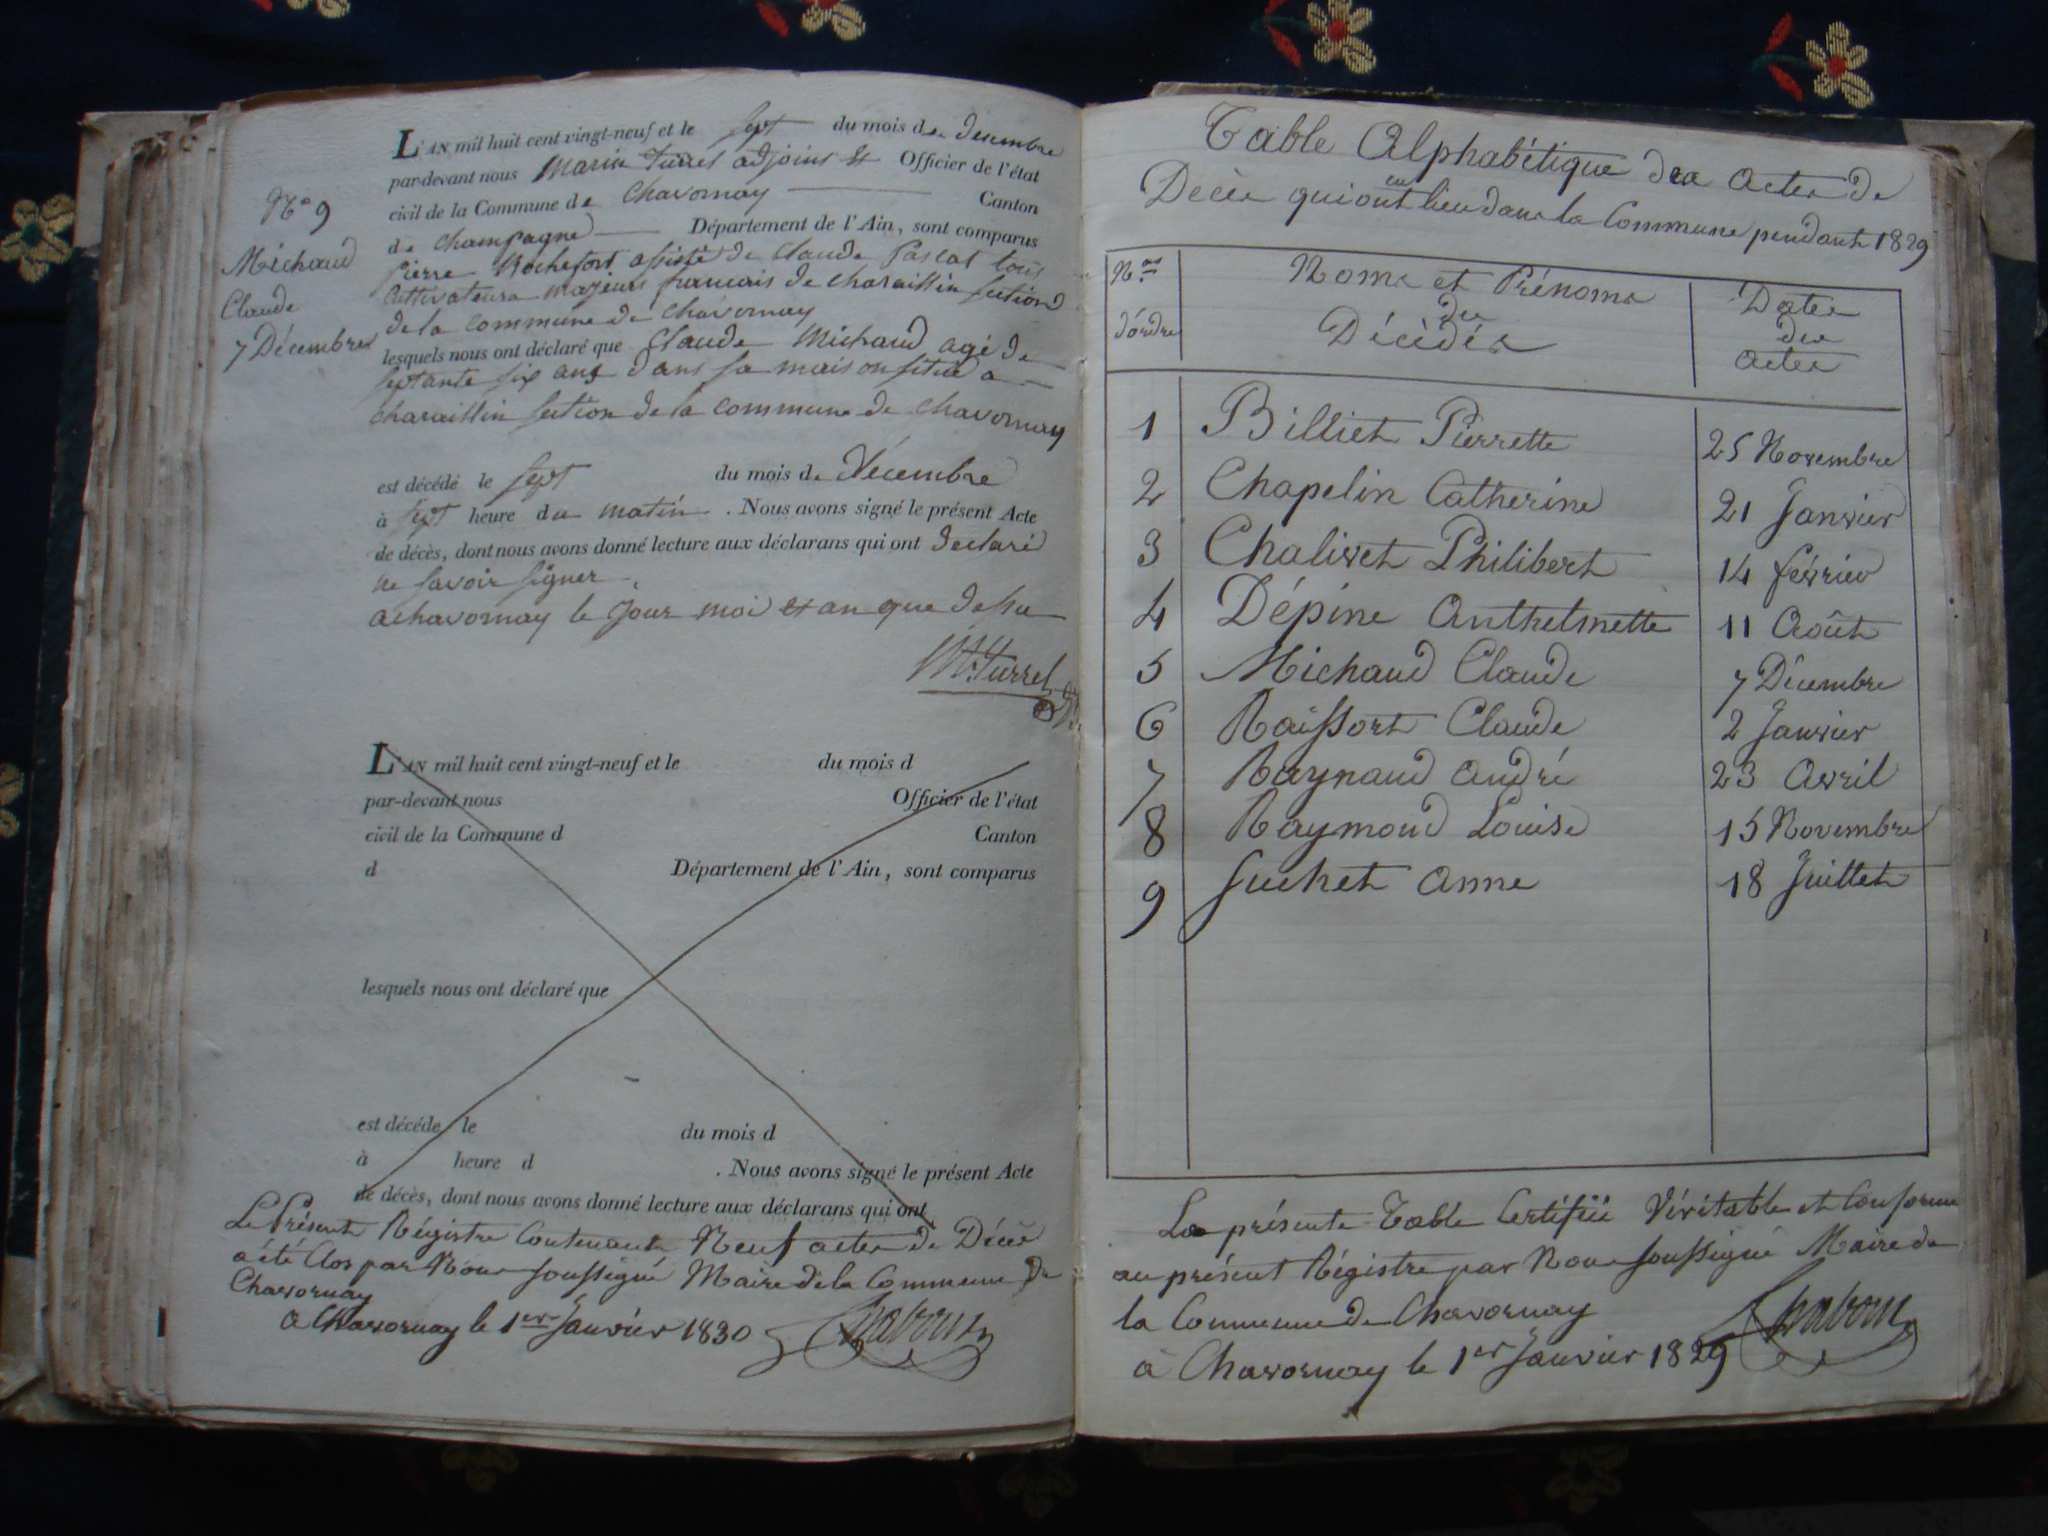 L'AN mil huit cent vingt-neuf et le sept du mois de décembre
par-devant nous Marin Turrel adjoint et Officier de l'état
civil de la Commune de Chavornay Canton
de Champagne Département de l'Ain, sont comparus
Pierre Rochefort assisté de Claude Pascal tous
Cultivateurs majeurs francais de charaillin section
de la commune de chavornay
lesquels nous ont déclaré que Claude Michaud agé de
septante six ans dans sa maison située a
charaillin section de la commune de chavornay
est décédé le sept du mois de Décembre
à sept heure du matin . Nous avons signé le présent Acte
de décès, dont nous avons donné lecture aux déclarans qui ont declaré
ne savoir signer
a chavornay le jour moi et an que dessu
M. Turrel
N° 9
Michaud
Claude
7 Décembre
L'AN mil huit cent vingt-neuf et le du mois d
par-devant nous Officier de l'état
civil de la Commune d Canton
d Département de l'Ain, sont comparus
lesquels nous ont déclaré que
est décédé le du mois d
à heure d . Nous avons signé le présent Acte
de décès, dont nous avons donné lecture aux déclarans qui ont
Le Présent Régistre Contenant Neuf actes de Décès
a été Clos par Nous soussigné Maire de la Commune de
Chavornay
a Chavornay le 1er Janvier 1830
Table Alphabétique des actes de
Décès qui ont eu lieu dans la Commune pendant 1829
Nos d'ordre
Noms et Prénoms
des
Décédés
Dates
des
actes
1 Billiet Pierrette 25 Novembre
2 Chapelin Catherine 21 Janvier
3 Chalivet Philibert 14 février
4 Dépine Anthelmette 11 Août
5 Michaud Claude 7 Décembre
6 Raissort Claude 2 Janvier
7 Raynaud André 23 Avril
8 Raymond Louise 15 Novembre
9 Juchet Anne 18 Juillet
La présente Table Certifiée Véritable et Conforme
au présent Régistre par Nous soussigné Maire de
la Commune de Chavornay
à Chavornay le 1er Janvier 1829